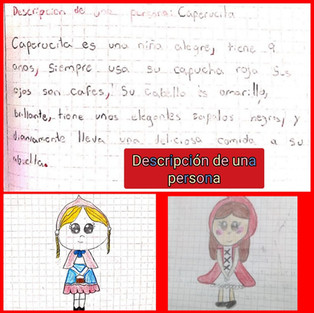 Descripcion de una persona: Caperucita
Caperucita es una niña alegre, tiene 9
años, Siempre usa su capucha roja Sus
ojos son cafes, Su Cabello es amarillo,
brillante, tiene unos elegantes zapatos negros, y
diariamente lleva una deliciosa comida a su
abuelita.
Descripción de una
persona